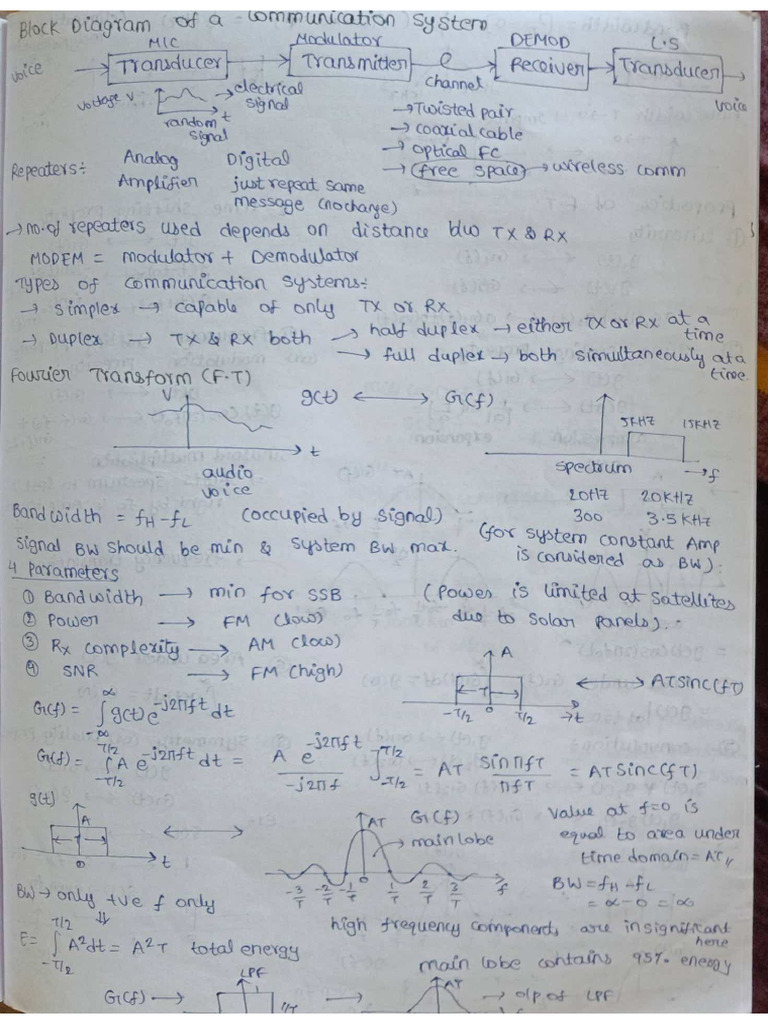 Block Diagram of a Communication System
MIC Modulator DEMOD L.S
voice Transducer Transmitter channel Receiver Transducer voice
voltage V electrical signal
random signal t
→ Twisted pair
→ coaxial cable
→ optical FC
→ free space → wireless comm
Repeaters:- Analog Digital
Amplifier just repeat same message (no change)
→ no. of repeaters used depends on distance b/w TX & RX
MODEM = modulator + Demodulator
Types of Communication Systems:-
→ simplex → capable of only TX or RX
→ Duplex → TX & RX both → half duplex → either TX or RX at a time
→ full duplex → both simultaneously at a time.
Fourier Transform (F.T)
V g(t) ⟷ G(f)
t
audio voice
5KHZ 15KHZ
spectrum → f
20HZ 20KHZ
300 3.5KHZ
Bandwidth = fH - fL (occupied by signal)
Signal BW should be min & System BW max.
(for system constant Amp is considered as BW).
4 Parameters
① Bandwidth → min for SSB
② Power → FM (low)
③ Rx complexity → AM (low)
④ SNR → FM (high)
(Power is limited at satellites due to solar panels).
A
T
-T/2 0 T/2 → t
⟷ AT sinc(fT)
G(f) = ∫_{-∞}^{∞} g(t) e^{-j2πft} dt
G(f) = ∫_{-T/2}^{T/2} A e^{-j2πft} dt = A e^{-j2πft} / -j2πf ]_{-T/2}^{T/2} = AT sin πfT / πfT = AT sinc(fT)
g(t)
A
T
0 t
⟷
AT G(f)
→ main lobe
-3/T -2/T -1/T 0 1/T 2/T 3/T f
value at f=0 is
equal to area under
time domain = AT//
BW = fH - fL
= ∞ - 0 = ∞
BW → only +ve f only
⇓
high frequency components are insignificant here
E = ∫_{-T/2}^{T/2} A²dt = A²T total energy
main lobe contains 95% energy
LPF
G(f) → 1/T → AT → o/p of LPF